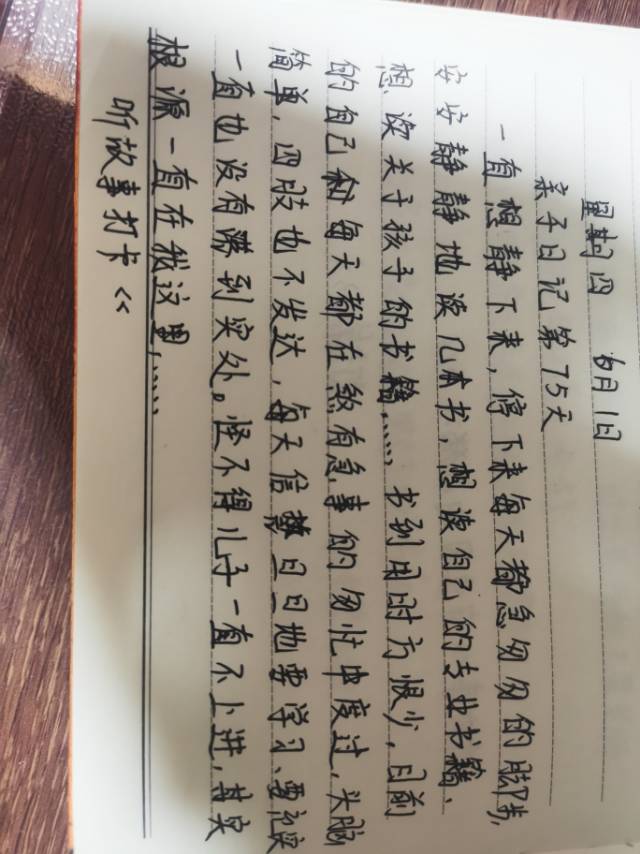 星期四 6月1日
亲子日记第75天
一直想静下来,停下来每天都急匆匆的脚步,
安安静静地读几本书,想读自己的专业书籍、
想读关于孩子的书籍……书到用时方恨少,目前
的自己和每天都在煞有急事的匆忙中度过,头脑
简单,四肢也不发达,每天信誓旦旦地要学习、要
一直也没有落到实处。怪不得儿子一直不上进,其实
根源一直在我这里,……
听故事打卡<<